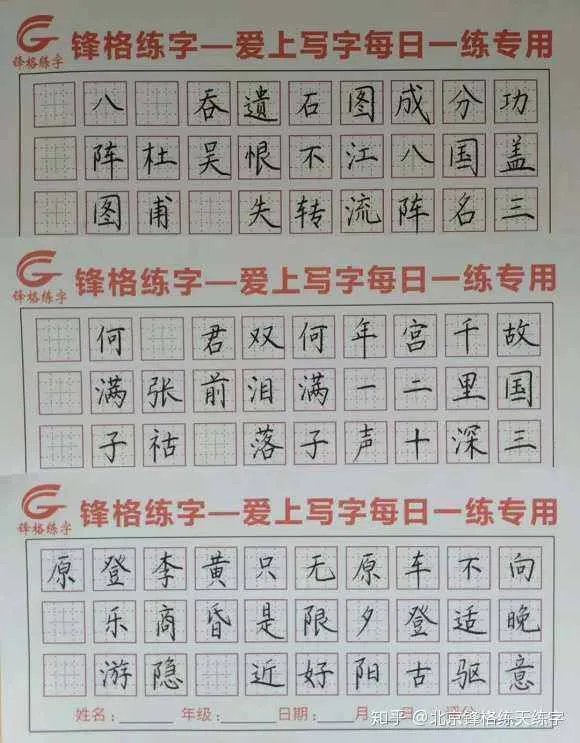 锋格练字
锋格练字—爱上写字每日一练专用
功盖三
分国名
成八阵
图江流
石不转
遗恨失
吞吴
杜甫
八阵图
锋格练字
锋格练字—爱上写字每日一练专用
故国三
千里深
宫二十
年一声
何满子
双泪落
君前
张祜
何满子
锋格练字
锋格练字—爱上写字每日一练专用
向晚意
不适驱
车登古
原夕阳
无限好
只是近
黄昏
李商隐
登乐游
原
姓名: 年级: 日期: 月 日
知乎 @北京锋格练天练字